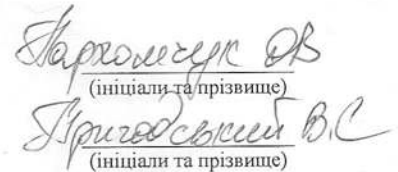 Пархомчук ОВ
(ініціали та прізвище)
Пригодський В.С
(ініціали та прізвище)